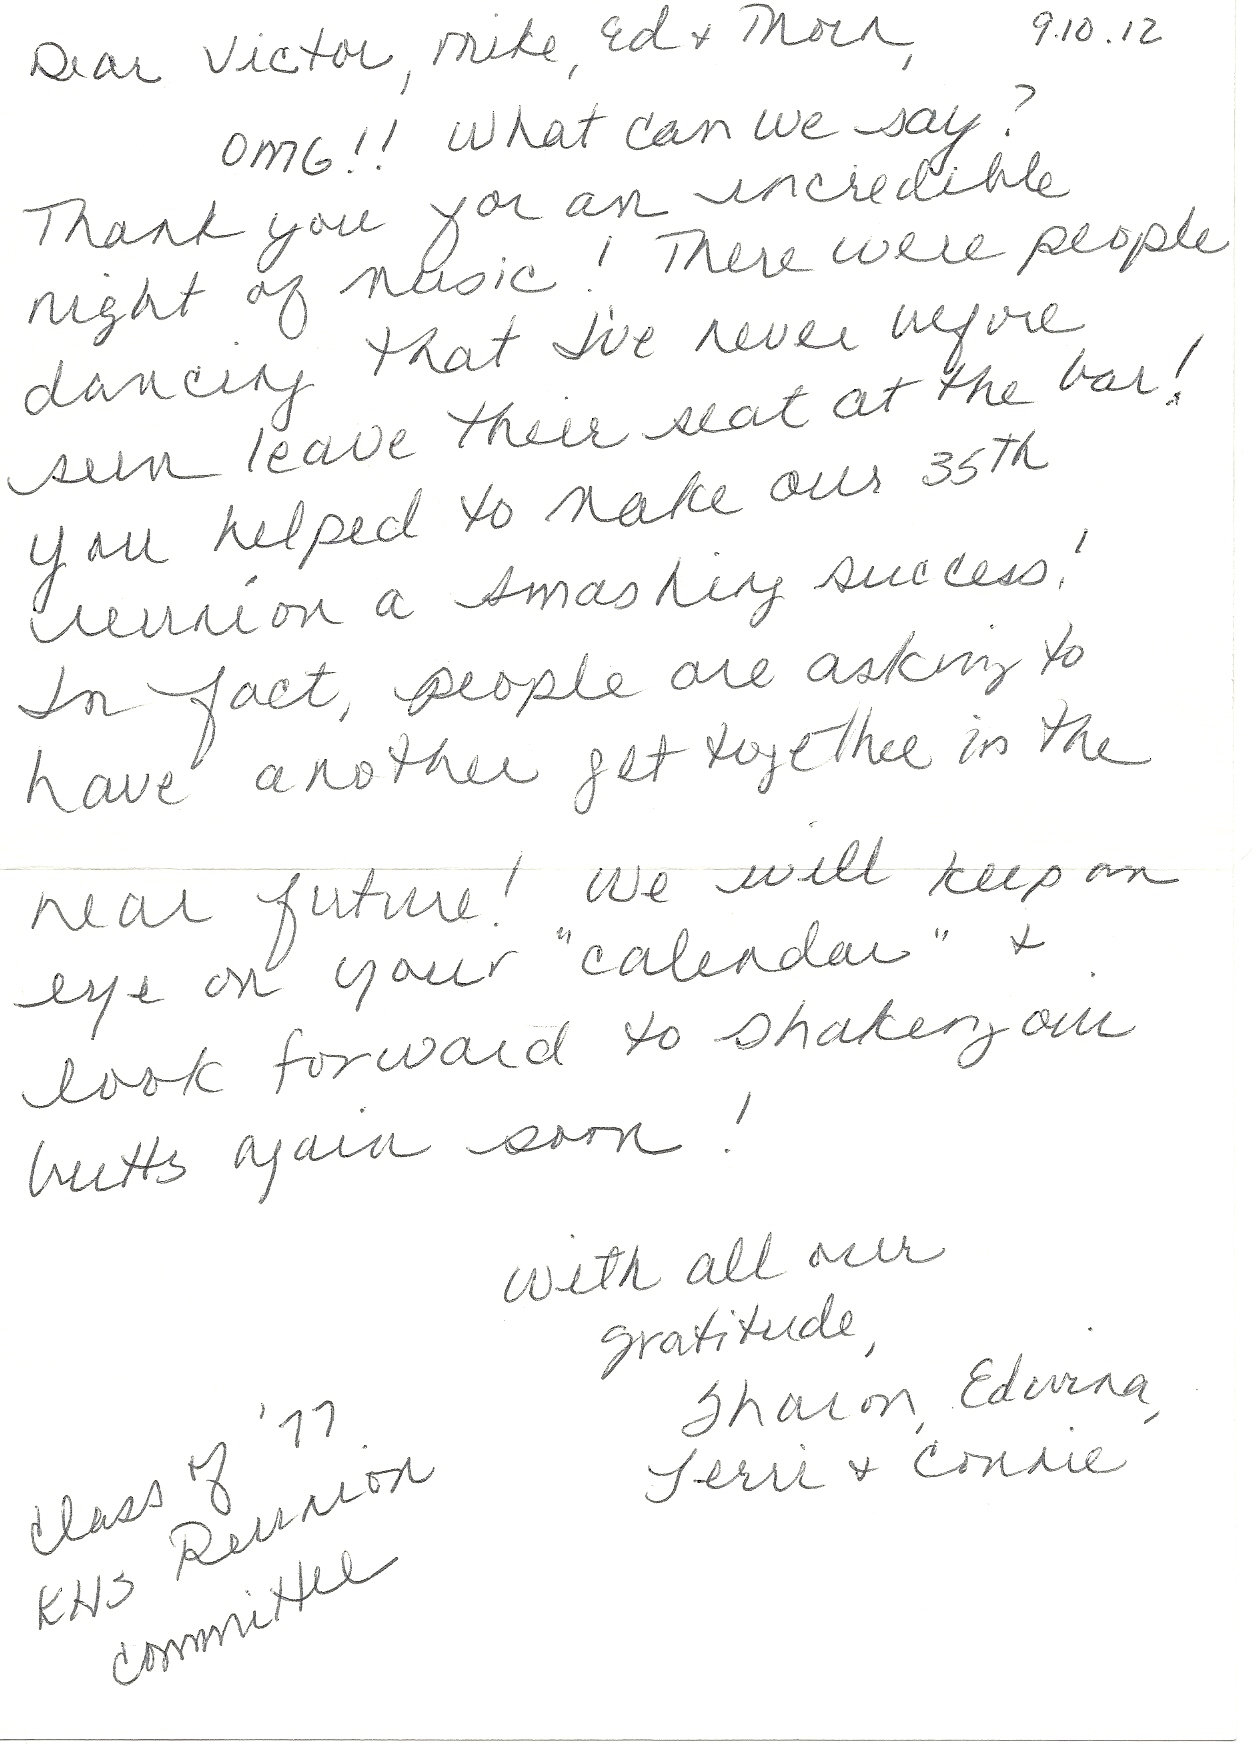 Dear Victor, Mike, Ed + Thorn, 9.10.12
OMG!! What can we say?
Thank you for an incredible
night of music! There were people
dancing that I've never before
seen leave their seat at the bar!
You helped to make our 35th
reunion a smashing success!
In fact, people are asking to
have another get together in the
near future! We will keep an
eye on your "calendar" +
look forward to shaking our
butts again soon!
With all our
gratitude,
Sharon, Edwina,
Terri + Connie
Class of '77
KHS Reunion
Committee